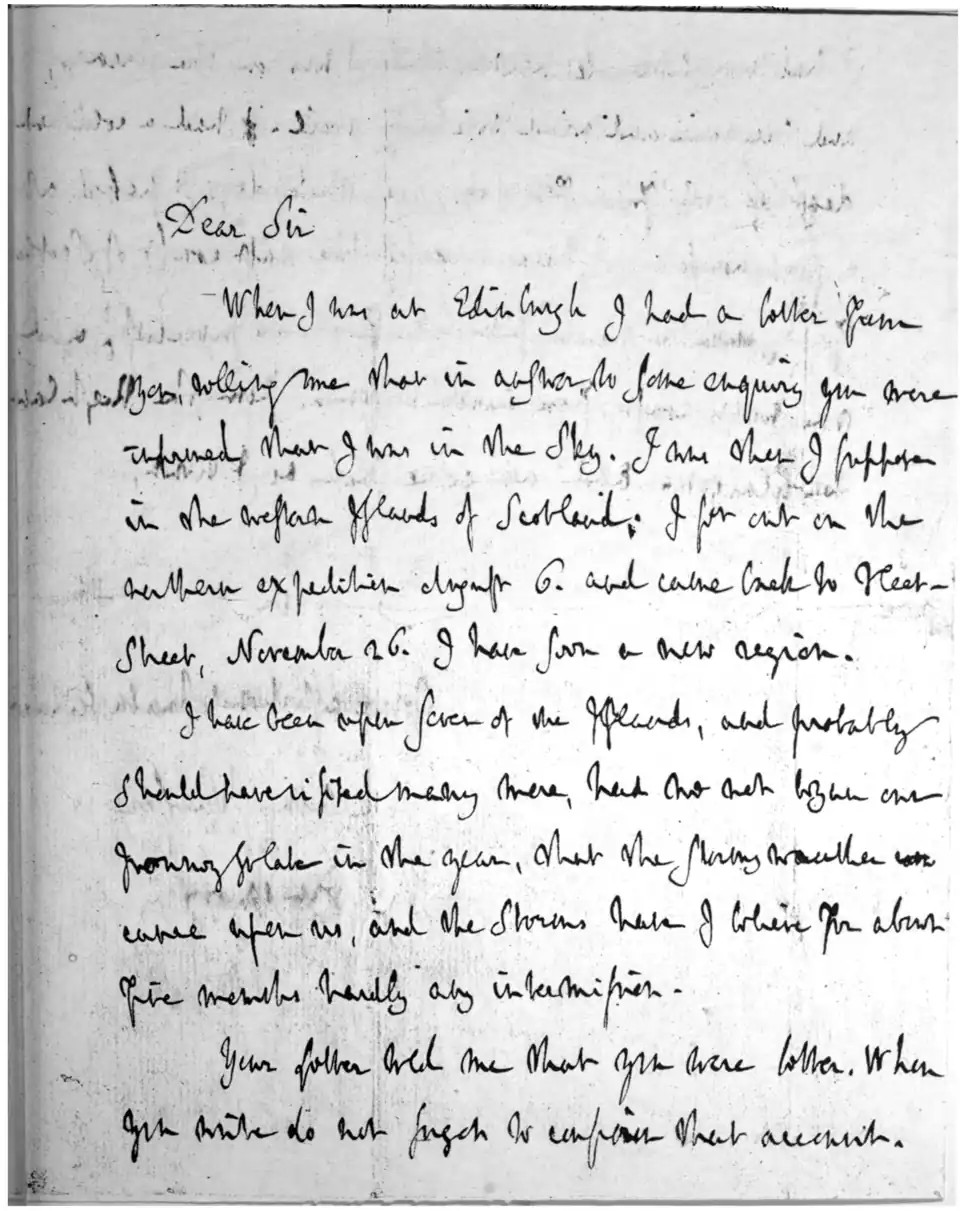 Dear Sir
When I was at Edinburgh I had a letter from
you, telling me that in answer to some enquiry you were
informed that I was in the Sky. I was then I suppose
in the western Islands of Scotland; I set out on the
northern expedition August 6. and came back to Fleet-
Street, November 26. I have seen a new region.
I have been upon seven of the Islands, and probably
should have visited many more, had we not begun our
journey so late in the year, that the stormy weather
came upon us, and the Storms have I believe for about
five months hardly any intermission.
Your Letter told me that you were better. When
you write do not forget to confirm that account.